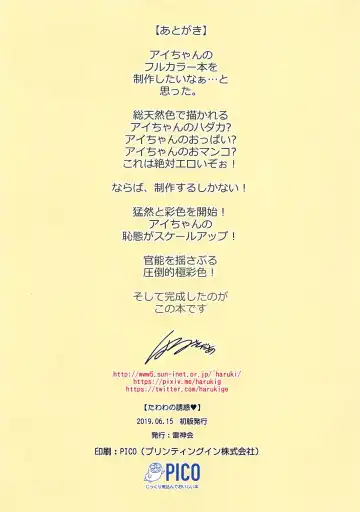 【あとがき】
アイちゃんの
フルカラー本を
制作したいなぁ…と
思った。
総天然色で描かれる
アイちゃんのハダカ?
アイちゃんのおっぱい?
アイちゃんのおマンコ?
これは絶対エロいぞぉ！
ならば、制作するしかない！
猛然と彩色を開始！
アイちゃんの
恥態がスケールアップ！
官能を揺さぶる
圧倒的極彩色！
そして完成したのが
この本です
http://www5.sun-inet.or.jp/~haruki/
https://pixiv.me/harukig
https://twitter.com/harukige
【たわわの誘惑♥】
2019.06.15 初版発行
発行：雷神会
印刷：PICO（プリンティングイン株式会社）
PICO
じっくり煮込んでおいしい本